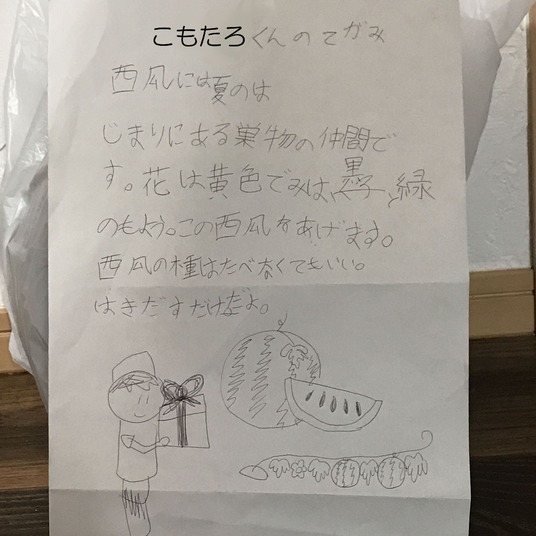 こもたろくんのてがみ
西瓜には夏のは
じまりにある巣物の仲間で
す。花は黄色でみは、黒と、緑
のもよう。この西瓜をあげます。
西瓜の種はたべなくてもいい。
はきだすだけだよ。